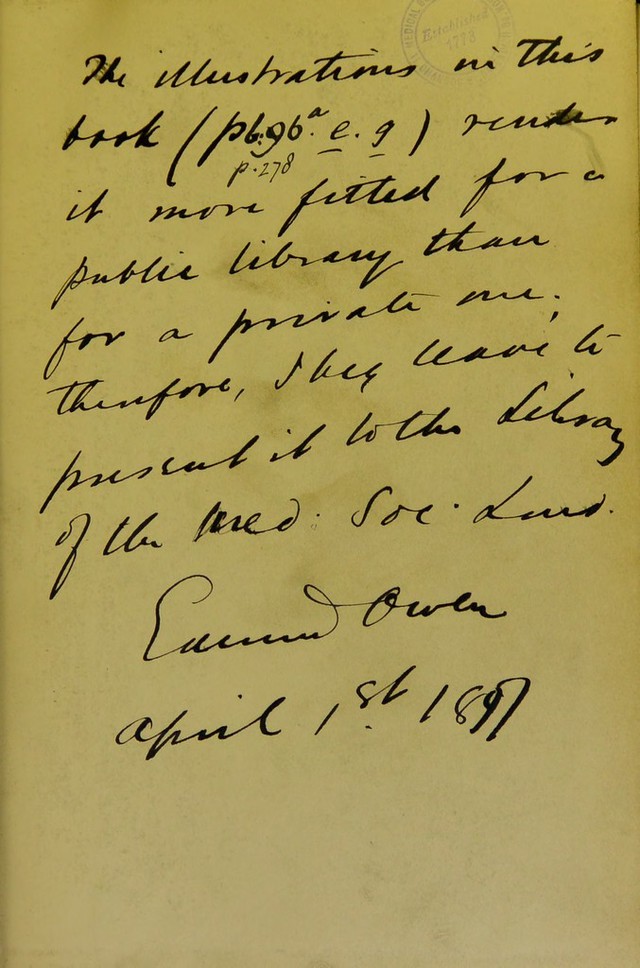 Established
1773
The illustrations in this
book (p. 96ᵃ. e. g) render
p. 278
it more fitted for a
public library than
for a private one;
therefore, I beg leave to
present it to the Library
of the Med: Soc. Lond.
Edmund Owen
April 1st. 1897